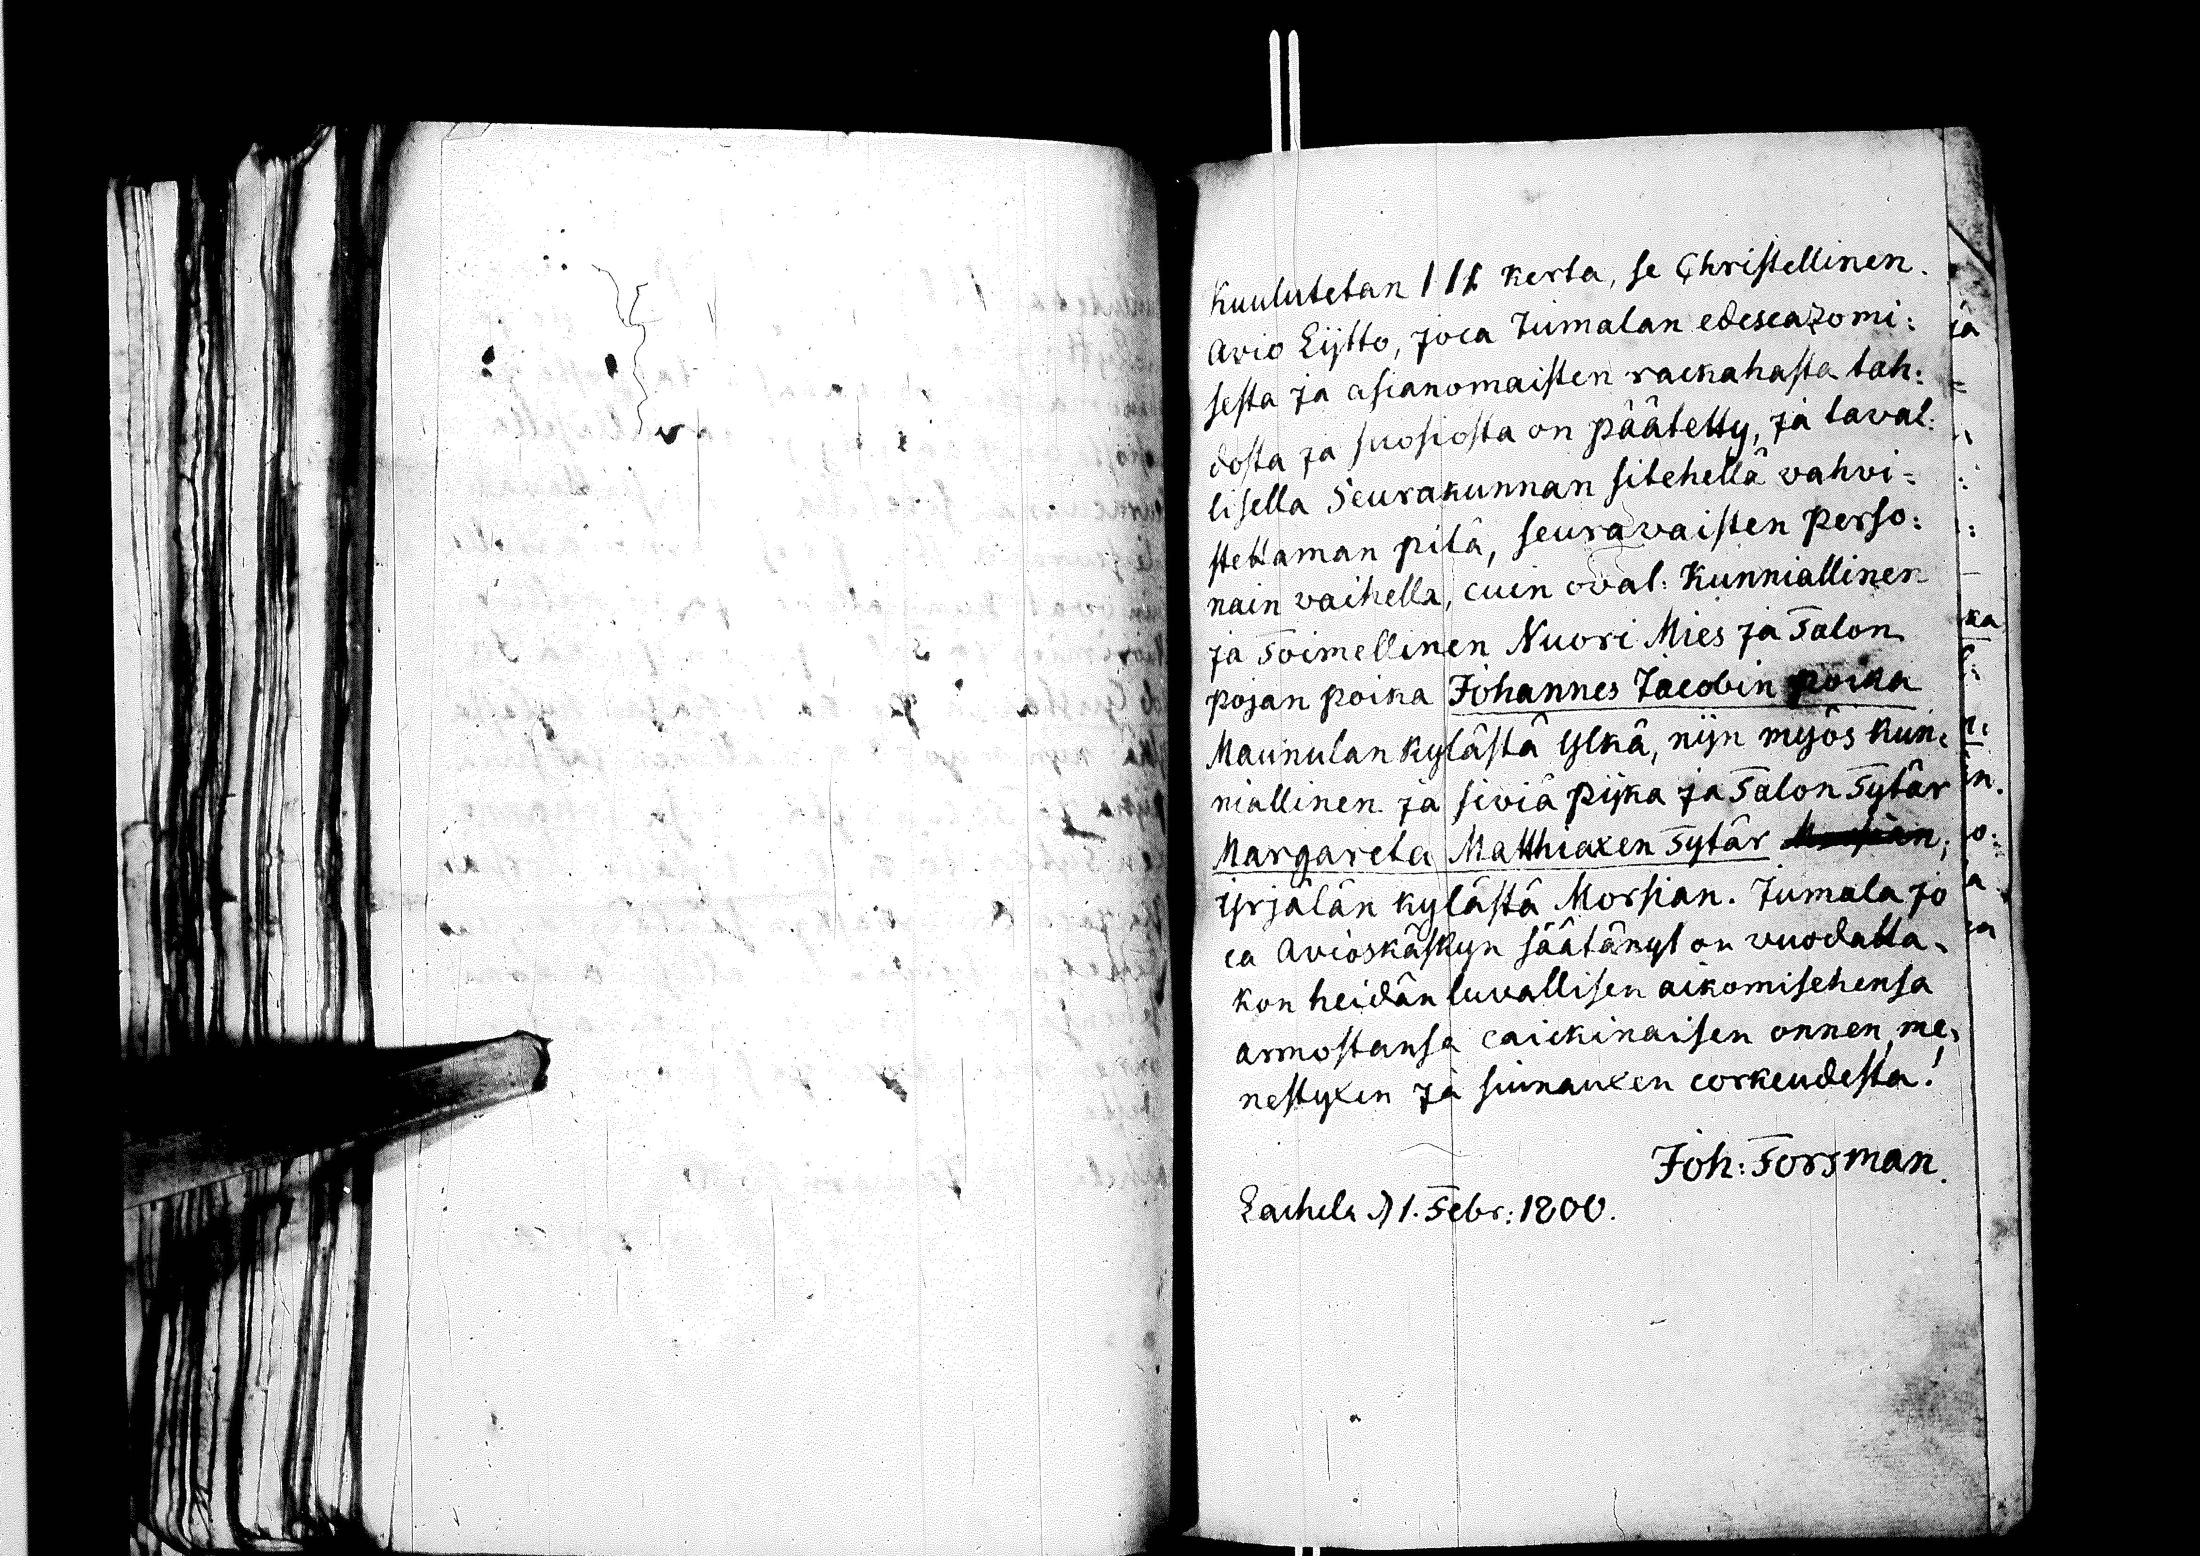 Kuulutetan III kerta, se Christellinen.
Avio Lijtto, joca Jumalan edescazomi:
sesta ja asianomaisten rackahasta tah:
dosta ja suosiosta on päätetty, ja taval:
lisella Seurakunnan sitehellä vahvi=
stettaman pitä, seuravaisten perso:
nain vaihella, cuin ovat: Kunniallinen
ja Toimellinen Nuori Mies ja Talon
pojan poika Johannes Jacobin poika
Maunulan kylästä Ylkä, nijn myös kun:
niallinen ja siviä pijka ja Talon Tytär
Margareta Matthiaxen Tytär
Yrjälän kylästä Morsian. Jumala jo
ca Avioskäskyn säätänyt on vuodatta-
kon heidän luvallisen aikomisehensa
armostansa caickinaisen onnen, me-
nestyxen ja siunauxen corkeudesta!
Joh: Forsman.
Laihela D 1. Febr: 1800.